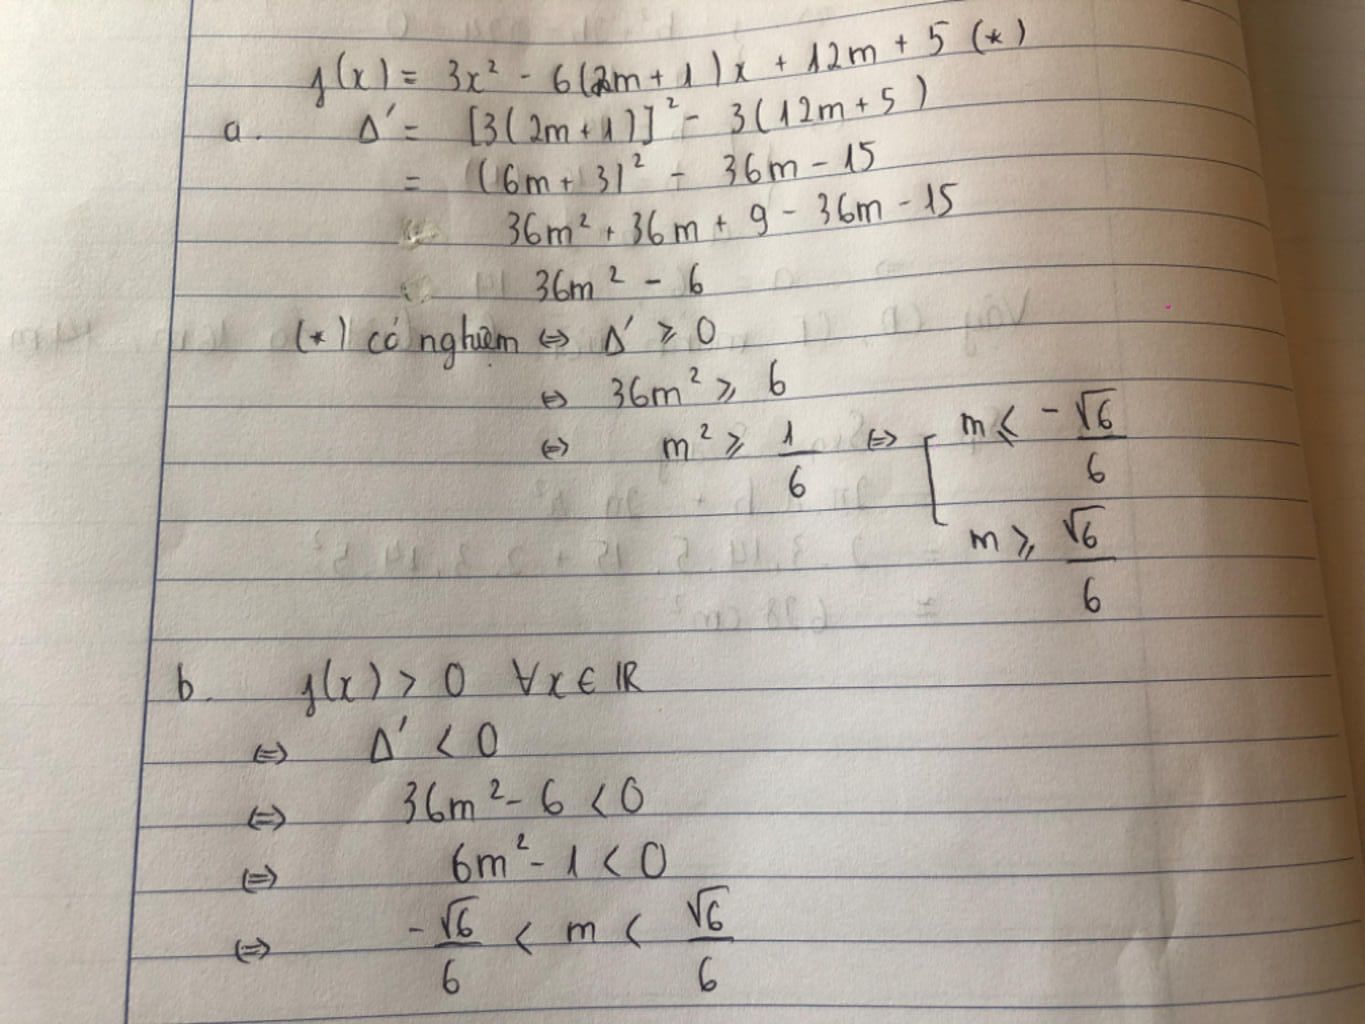 f(x) = 3x² - 6(2m + 1)x + 12m + 5 (*)
a. Δ' = [3(2m + 1)]² - 3(12m + 5)
= (6m + 3)² - 36m - 15
36m² + 36m + 9 - 36m - 15
36m² - 6
(*) có nghiệm ⇔ Δ' ⩾ 0
⇔ 36m² ⩾ 6
⇔ m² ⩾ 1/6 ⇔ [ m ⩽ -√6/6
m ⩾ √6/6
b. f(x) > 0 ∀x ∈ ℝ
⇔ Δ' < 0
⇔ 36m² - 6 < 0
⇔ 6m² - 1 < 0
⇔ -√6/6 < m < √6/6